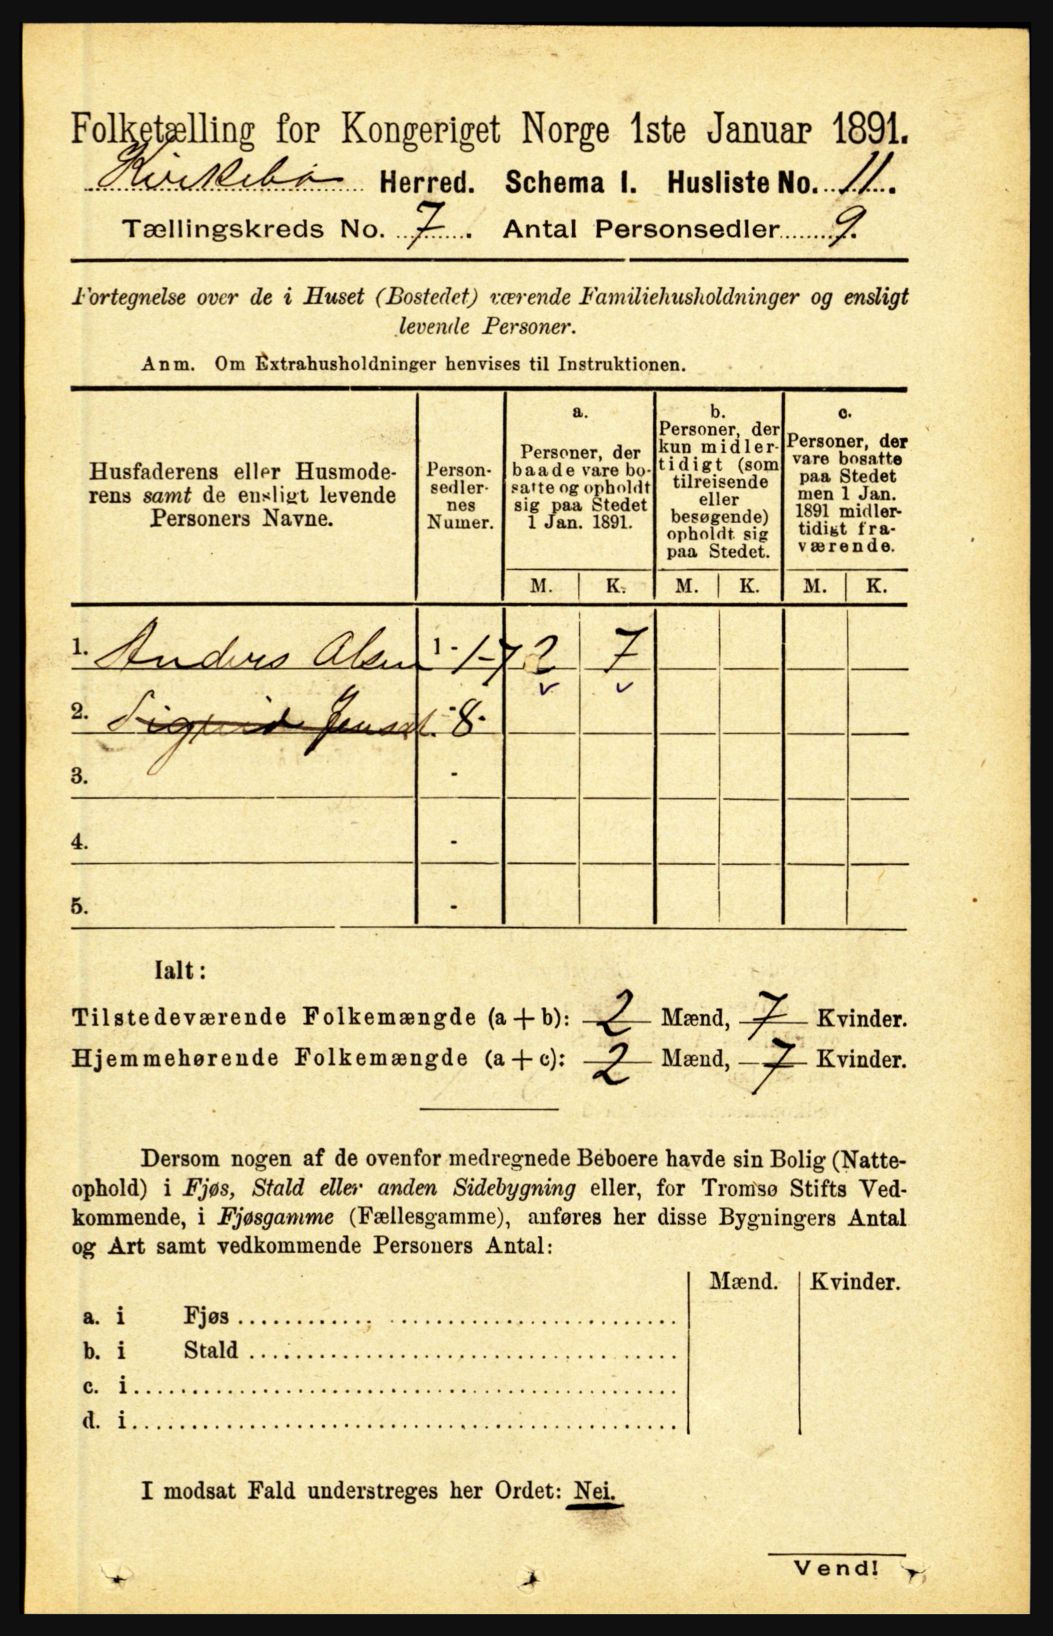 Folketælling for Kongeriget Norge 1ste Januar 1891.
Kirkebø Herred. Schema I. Husliste No. 11.
Tællingskreds No. 7. Antal Personsedler 9.
Fortegnelse over de i Huset (Bostedet) værende Familiehusholdninger og ensligt
levende Personer.
Anm. Om Extrahusholdninger henvises til Instruktionen.
Husfaderens eller Husmode-
rens samt de ensligt levende
Personers Navne.
Person-
sedler-
nes
Numer.
a.
Personer, der
baade vare bo-
satte og opholdt
sig paa Stedet
1 Jan. 1891.
b.
Personer, der
kun midler-
tidigt (som
tilreisende
eller
besøgende)
opholdt sig
paa Stedet.
c.
Personer, der
vare bosatte
paa Stedet
men 1 Jan.
1891 midler-
tidigt fra-
værende.
M. K. M. K. M. K.
1. Anders Olsen 1 - 1-7 2 7
2. Sigrid Jensd. - 8 -
3. -
4. -
5. -
Ialt:
Tilstedeværende Folkemængde (a + b): 2 Mænd, 7 Kvinder.
Hjemmehørende Folkemængde (a + c): 2 Mænd, 7 Kvinder.
Dersom nogen af de ovenfor medregnede Beboere havde sin Bolig (Natte-
ophold) i Fjøs, Stald eller anden Sidebygning eller, for Tromsø Stifts Ved-
kommende, i Fjøsgamme (Fællesgamme), anføres her disse Bygningers Antal
og Art samt vedkommende Personers Antal:
Mænd. Kvinder.
a. i Fjøs
b. i Stald
c. i
d. i
I modsat Fald understreges her Ordet: Nei.
Vend!